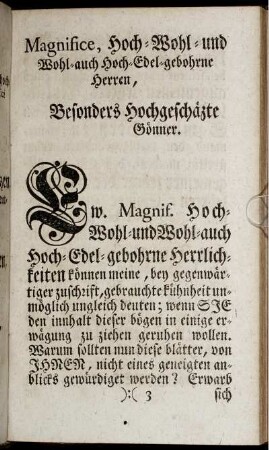 Magnifice, Hoch-Wohl-und
Wohl-auch Hoch-Edel-gebohrne
Herren,
Besonders Hochgeschäzte
Gönner.
Ew. Magnif. Hoch-
Wohl-und Wohl-auch
Hoch-Edel-gebohrne Herrlich-
keiten können meine, bey gegenwär-
tiger zuschrift, gebrauchte kühnheit un-
möglich ungleich deuten; wenn SIE
den innhalt dieser bögen in einige er-
wägung zu ziehen geruhen wollen.
Warum sollten nun diese blätter, von
IHNEN, nicht eines geneigten an-
blicks gewürdiget werden? Erwarb
):( 3 sich